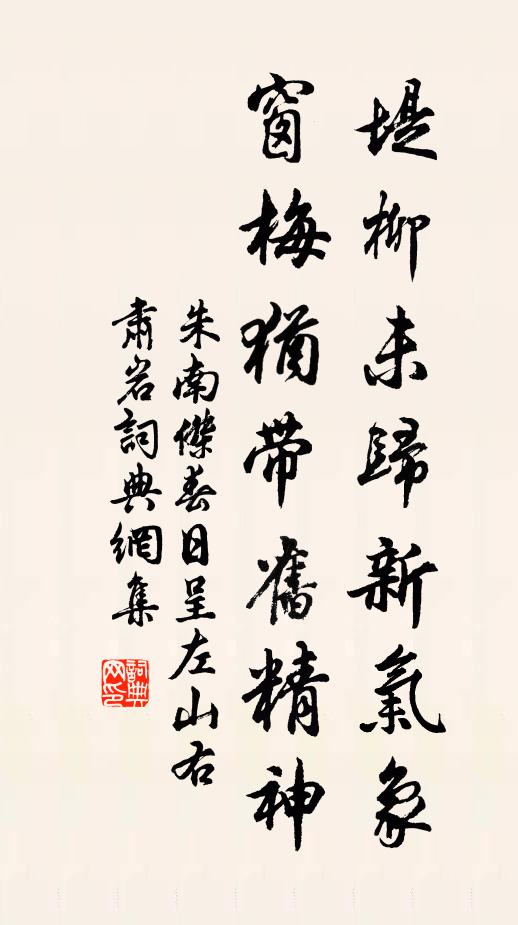 堤柳未歸新氣象
窗梅猶帶舊精神
朱南傑春日呈左山右
肅岩詞典網集
詞典网印